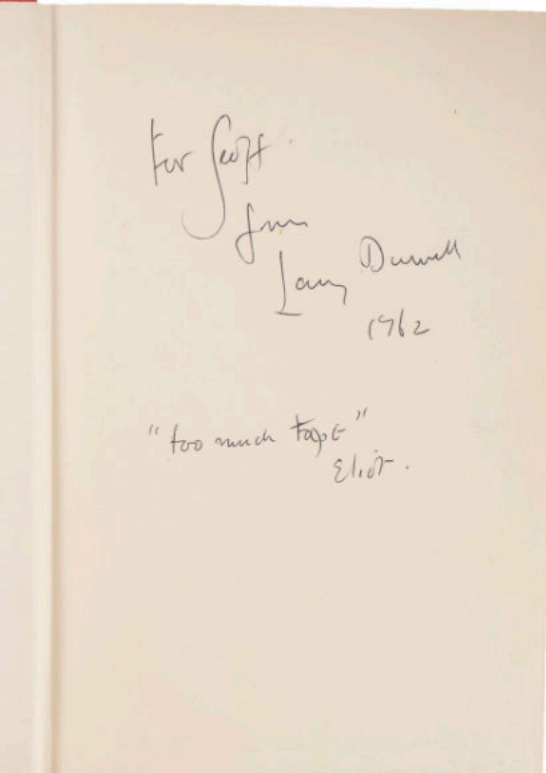 For Geoff
from
Larry Durrell
1962
"too much tape"
Eliot.